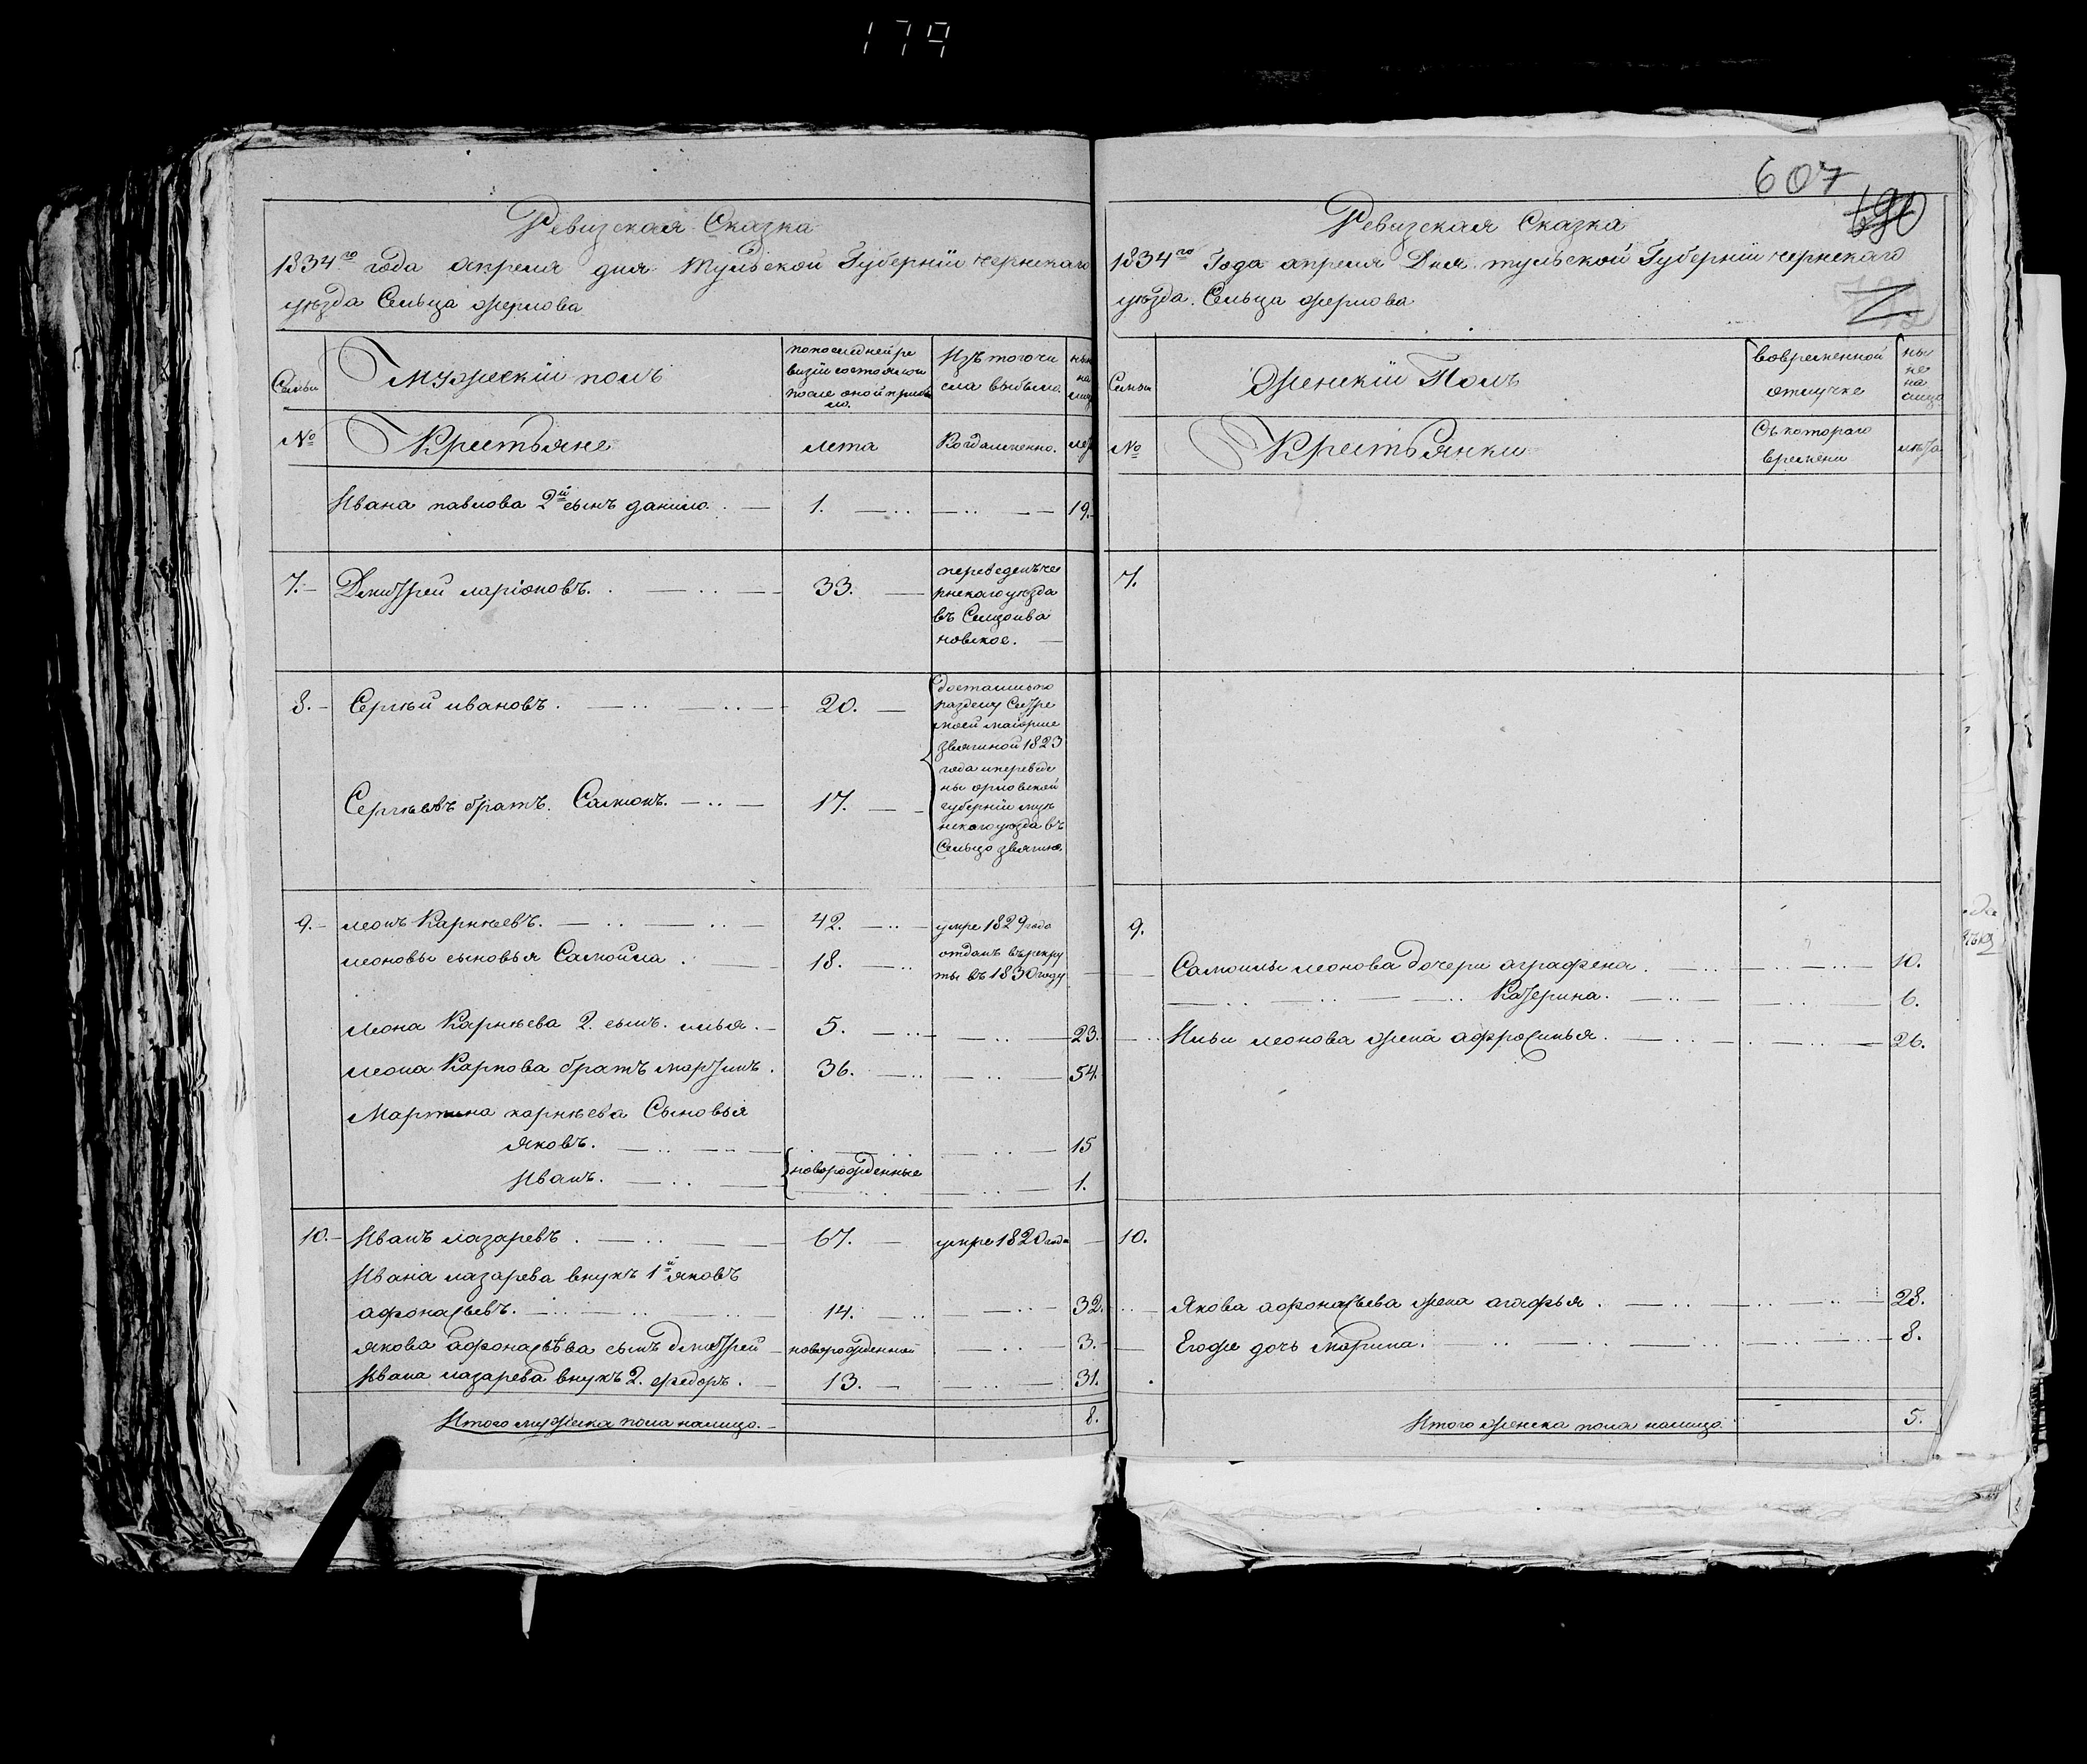 179
Ревизская Сказка
1834го года апреля дня Тульской Губернiи чернскаго
уѣзда Сельца жерлова
Семьи
Мужескiй полъ
попоследней ре
визiи состояло и
после оной прибы
ло.
Изъ того чи
сла выбыло.
ны
не
на
лицо
№
Крестьяне
лета
Когда именно.
лета
Ивана павлова 2й сынъ данило. 1. 19.
7. Дмитрей ларiоновъ. 33.
переведенъ че
рнскаго уѣзда
въ Сельцо ива
новское.
8. Сергѣй ивановъ. 20.
Сергѣевъ братъ. Самсонъ. 17.
достались по
разделу Сестре
моей маiорше
звягиной 1823
года и переведе
ны орловской
губернiи мце
нскаго уѣзда въ
Сельцо звягино.
9. леонъ Карнѣевъ. 42. умре 1829 года
леоновы сыновья Самойла. 18. отданъ въ рекру
ты въ 1830 году
леона Карнѣева 2. сынъ. илья. 5. 23.
леона Карпова братъ мартинъ. 36. 54.
Мартина карнѣева Сыновья
яковъ. 15
Иванъ. новорожденные 1.
10. Иванъ лазаревъ. 67. умре 1820 года
Ивана лазарева внукъ 1й яковъ
афонасьевъ. 14. 32.
якова афонасьева сынъ дмитрей новорожденной 3.
Ивана лазарева внукъ 2. федоръ. 13. 31.
Итого мужеска пола налицо. 8.
607
690
Ревизская Сказка
1834го Года апреля Дня тульской Губернiи чернскаго
уѣзда. Сельца жерлова
Семьи
Женскiй Полъ
вовременной
отлучке
ны
не
на
лицо
№
Крестьянки
Съ котораго
времени
лѣта
7.
9.
Самоилы леонова дочери аграфена. 10.
Катерина. 6.
Ильи леонова жена афросинья. 26.
10.
Якова афонасьева жена агафья. 28.
Егоже дочь марина. 8.
Итого женска пола налицо. 5.